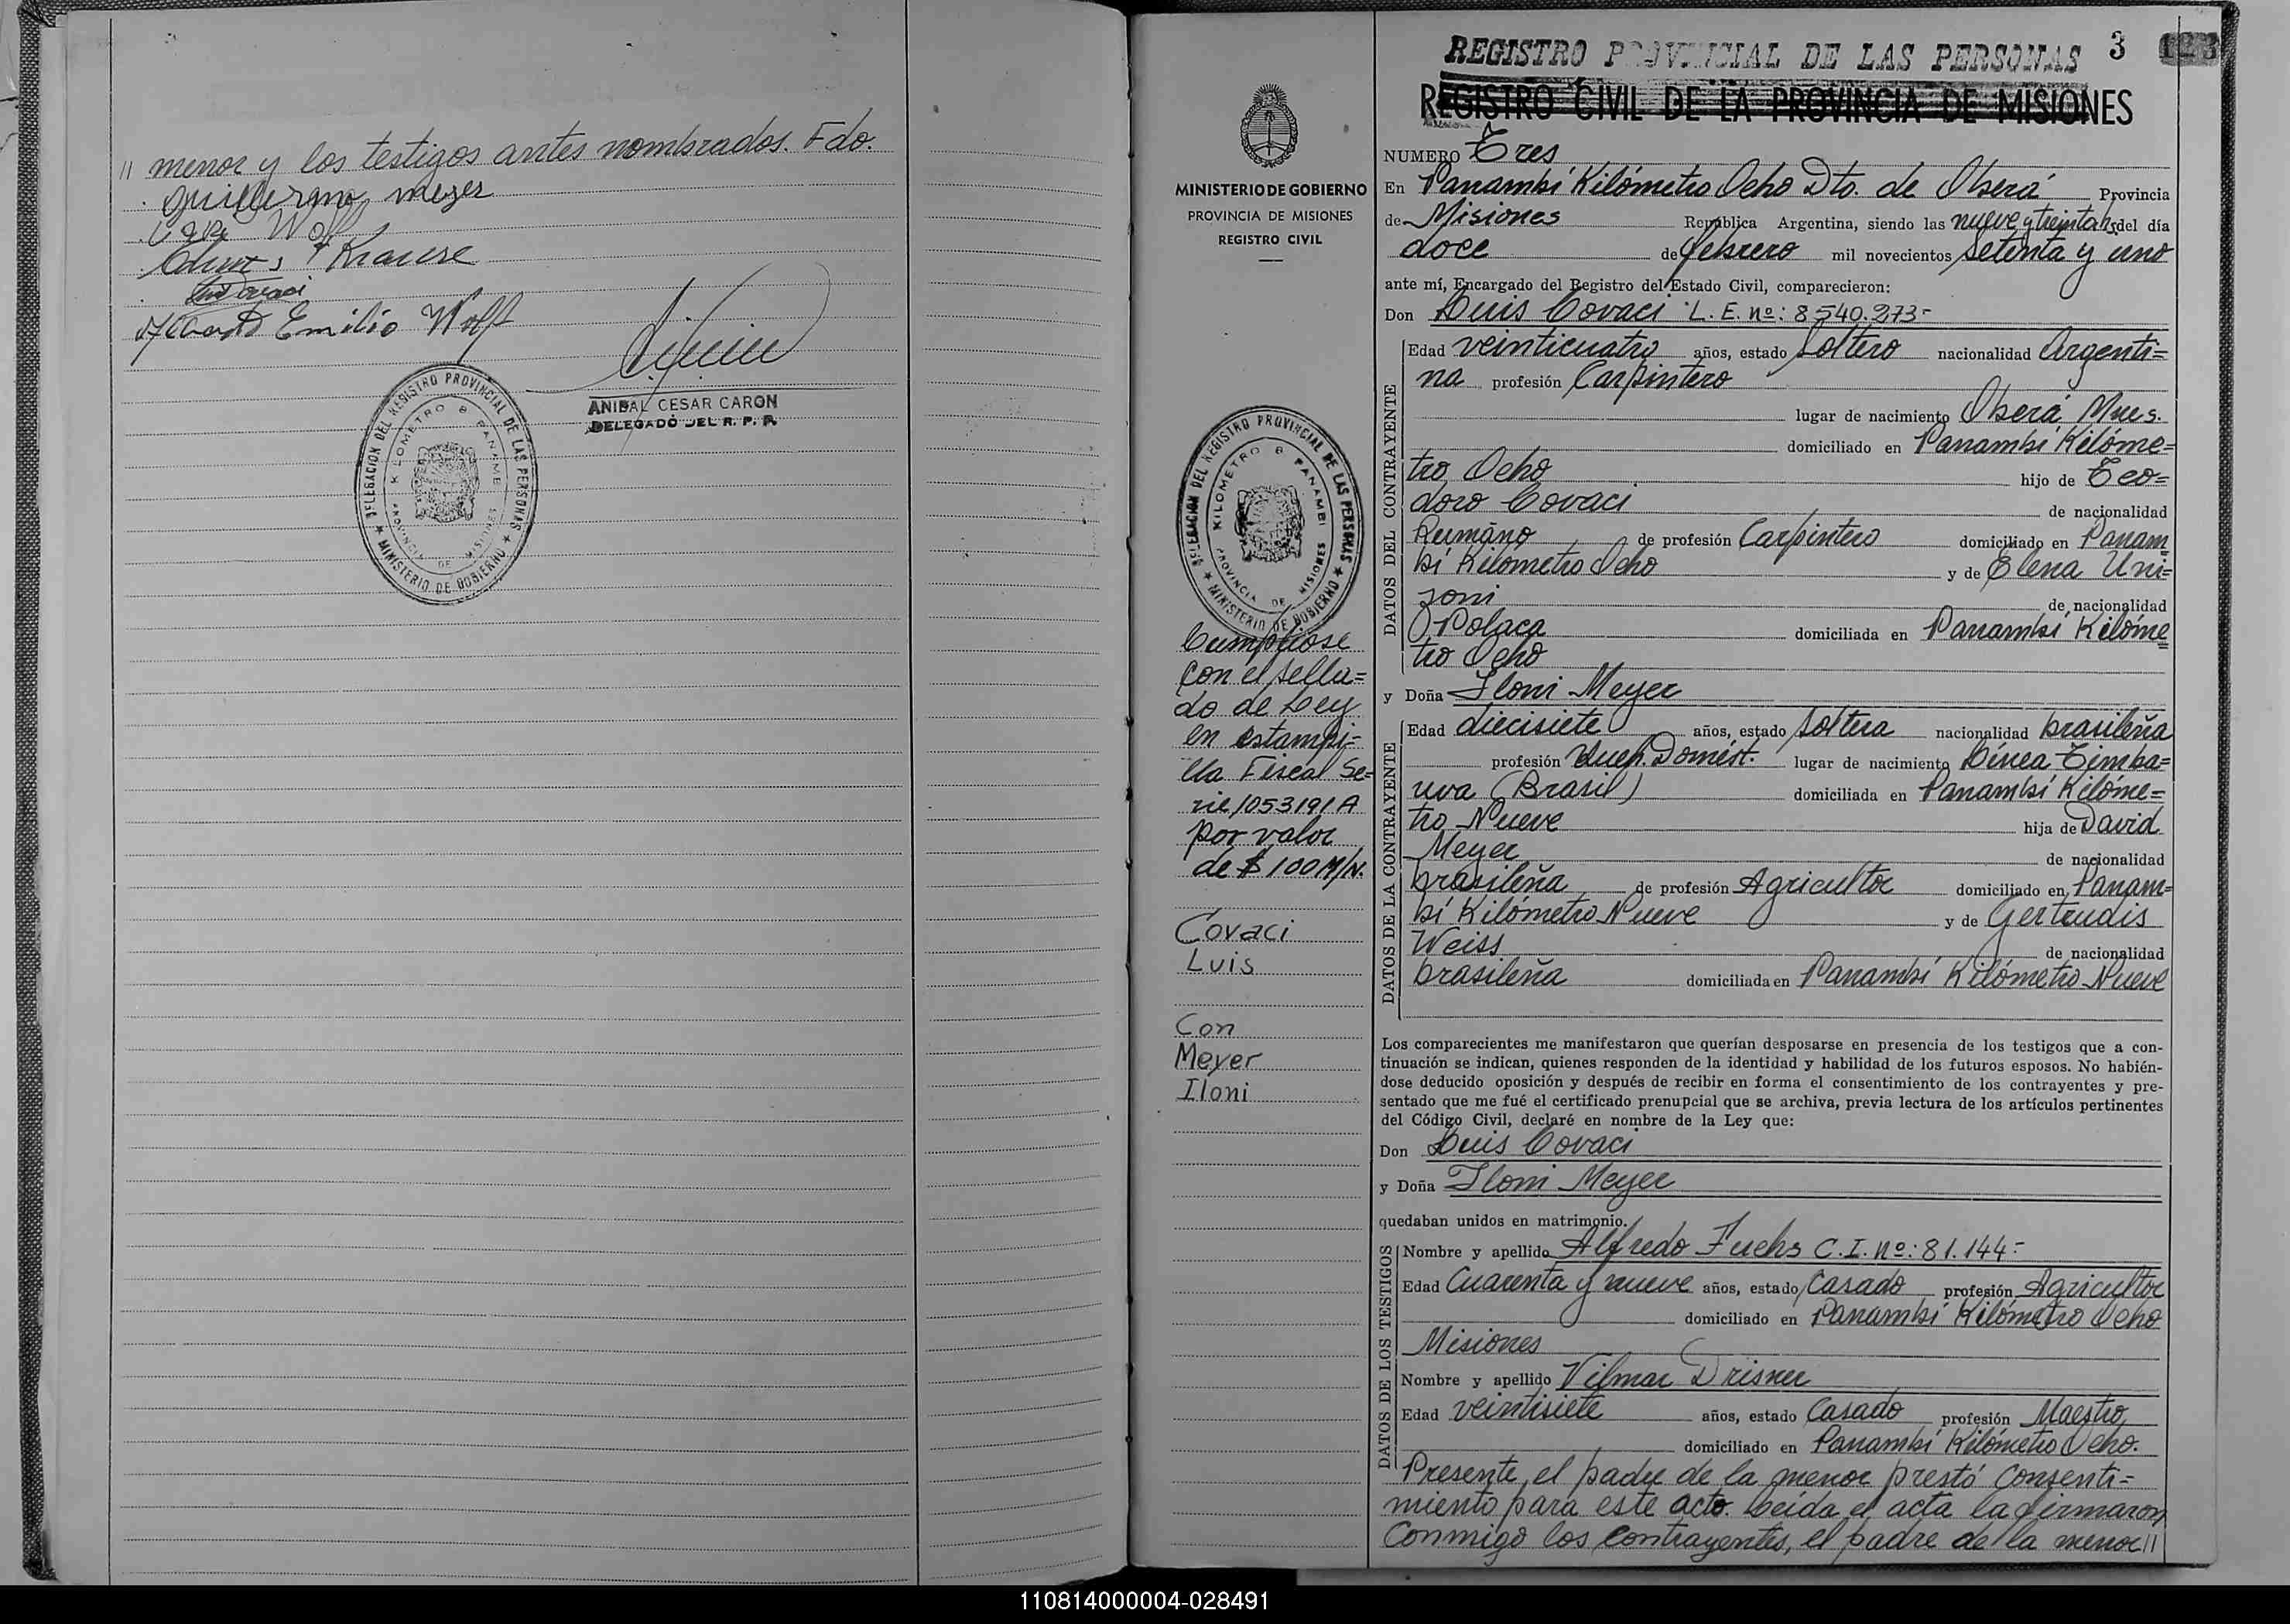 // menor y los testigos antes nombrados. Fdo.
Guillermo Meyer
Wolf
Krause
Covaci
Emilio Wolf
ANIBAL CESAR CARON
DELEGADO DEL R. P. P.
DELEGACION DEL REGISTRO PROVINCIAL DE LAS PERSONAS
KILOMETRO 8 PANAMBI
PROVINCIA DE MISIONES
★ MINISTERIO DE GOBIERNO ★
MINISTERIO DE GOBIERNO
PROVINCIA DE MISIONES
REGISTRO CIVIL
DELEGACION DEL REGISTRO PROVINCIAL DE LAS PERSONAS
KILOMETRO 8 PANAMBI
PROVINCIA DE MISIONES
★ MINISTERIO DE GOBIERNO ★
Cumplióse
con el sella=
do de Ley
en estampi=
lla Fiscal Se=
rie 1053191.A
por valor
de $ 100 M/N.
Covaci
Luis
Con
Meyer
Iloni
REGISTRO PROVINCIAL DE LAS PERSONAS 3
REGISTRO CIVIL DE LA PROVINCIA DE MISIONES
NUMERO Tres
En Panambí Kilómetro Ocho Dto. de Oberá Provincia
de Misiones República Argentina, siendo las nueve y treinta hs del día
doce de febrero mil novecientos setenta y uno
ante mí, Encargado del Registro del Estado Civil, comparecieron:
Don Luis Covaci L. E. nº: 8.540.273-
DATOS DEL CONTRAYENTE
Edad veinticuatro años, estado soltero nacionalidad Argenti=
na profesión Carpintero
lugar de nacimiento Oberá Mnes.
domiciliado en Panambí Kilóme=
tro Ocho hijo de Teo=
doro Covaci de nacionalidad
Rumano de profesión Carpintero domiciliado en Panam
bí Kilómetro Ocho y de Elena Uni=
zoni de nacionalidad
Polaca domiciliada en Panambí Kilóme
tro Ocho
y Doña Iloni Meyer
DATOS DE LA CONTRAYENTE
Edad diecisiete años, estado soltera nacionalidad brasileña
profesión Queh. Domést. lugar de nacimiento Línea Timba=
uva (Brasil) domiciliada en Panambí Kilóme=
tro Nueve hija de David
Meyer de nacionalidad
brasileña de profesión Agricultor domiciliado en Panam=
bí Kilómetro Nueve y de Gertrudis
Weiss de nacionalidad
brasileña domiciliada en Panambí Kilómetro Nueve
Los comparecientes me manifestaron que querían desposarse en presencia de los testigos que a con-
tinuación se indican, quienes responden de la identidad y habilidad de los futuros esposos. No habién-
dose deducido oposición y después de recibir en forma el consentimiento de los contrayentes y pre-
sentado que me fué el certificado prenupcial que se archiva, previa lectura de los artículos pertinentes
del Código Civil, declaré en nombre de la Ley que:
Don Luis Covaci
y Doña Iloni Meyer
quedaban unidos en matrimonio.
DATOS DE LOS TESTIGOS
Nombre y apellido Alfredo Fuchs C.I. nº: 81.144-
Edad Cuarenta y nueve años, estado Casado profesión Agricultor
domiciliado en Panambí Kilómetro Ocho
Misiones
Nombre y apellido Vilmar Drisner
Edad veintisiete años, estado Casado profesión Maestro
domiciliado en Panambí Kilómetro Ocho.
Presente el padre de la menor prestó consenti=
miento para este acto. Leída el acta la firmaron
conmigo los contrayentes, el padre de la menor //
110814000004-028491